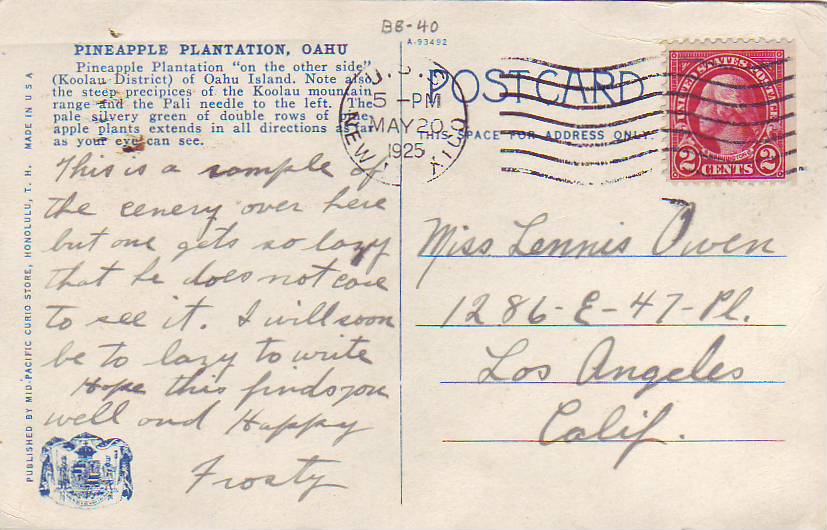 BB-40
PINEAPPLE PLANTATION, OAHU
Pineapple Plantation "on the other side"
(Koolau District) of Oahu Island. Note also
the steep precipices of the Koolau mountain
range and the Pali needle to the left. The
pale silvery green of double rows of
apple plants extends in all directions as far
as your eye can see.
This is a sample of
the cenery over here
but one gets so lazy
that he does not care
to see it. I will soon
be to lazy to write
Hope this finds you
well and Happy
Frosty
PUBLISHED BY MID-PACIFIC CURIO STORE, HONOLULU, T. H. MADE IN U S A
A-93492
POSTCARD
THIS SPACE FOR ADDRESS ONLY.
U.S.S.
5-PM
MAY 20
1925
NEW MEXICO
UNITED STATES POSTAGE
WASHINGTON
2 CENTS 2
Miss Lennis Owen
1286-E-47-Pl.
Los Angeles
Calif.